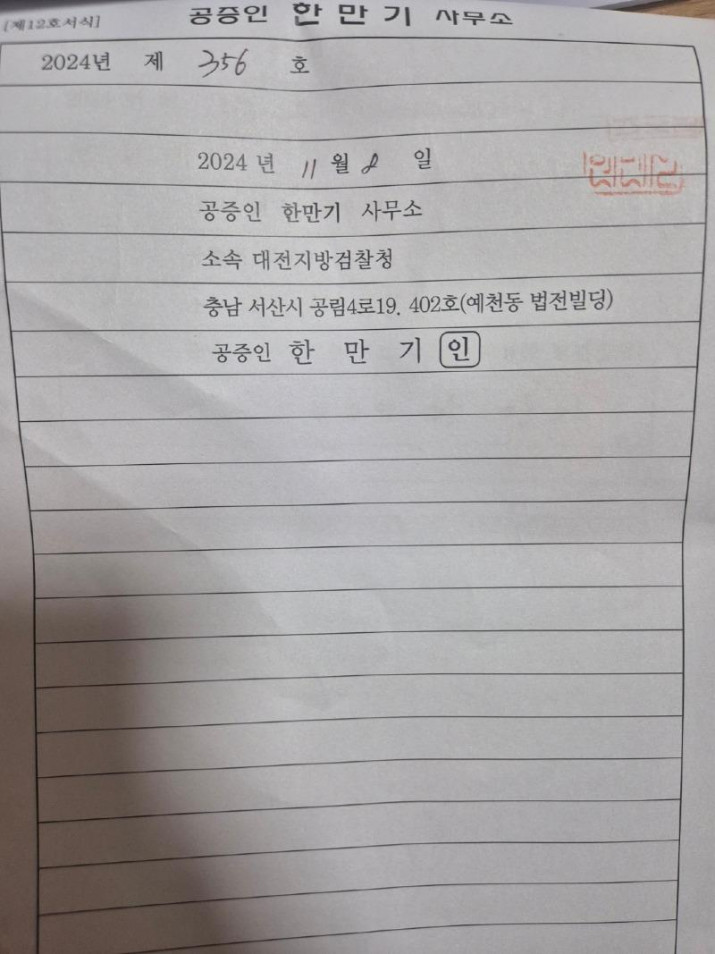 [제12호서식]
공증인 한만기 사무소
2024년 제 356 호
2024 년 11 월 8 일
공증인 한만기 사무소
소속 대전지방검찰청
충남 서산시 공림4로19, 402호(예천동 법전빌딩)
공증인 한 만 기 인